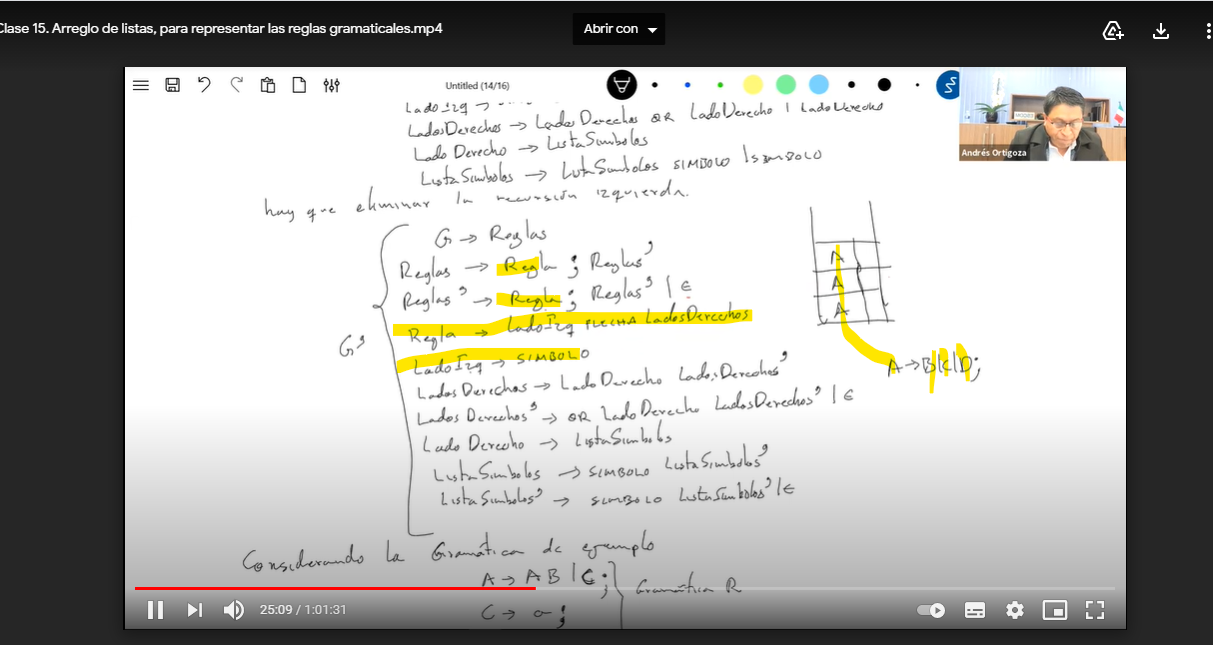 Clase 15. Arreglo de listas, para representar las reglas gramaticales.mp4
Abrir con
Untitled (14/16)
Andrés Ortigoza
LadoIzq →
LadosDerechos → LadosDerechos OR LadoDerecho | LadoDerecho
Lado Derecho → ListaSimbolos
ListaSimbolos → ListaSimbolos SIMBOLO | SIMBOLO
hay que eliminar la recursión izquierda.
G → Reglas
Reglas → Regla ; Reglas'
Reglas' → Regla ; Reglas' | ε
Regla → LadoIzq FLECHA LadosDerechos
LadoIzq → SIMBOLO
LadosDerechos → LadoDerecho LadosDerechos'
LadosDerechos' → OR LadoDerecho LadosDerechos' | ε
Lado Derecho → ListaSimbolos
ListaSimbolos → SIMBOLO ListaSimbolos'
ListaSimbolos' → SIMBOLO ListaSimbolos' | ε
G'
A
A
A
A → B|C|D;
Considerando la Gramática de ejemplo
A → A B | C ;
C → a ;
Gramática R
25:09 / 1:01:31